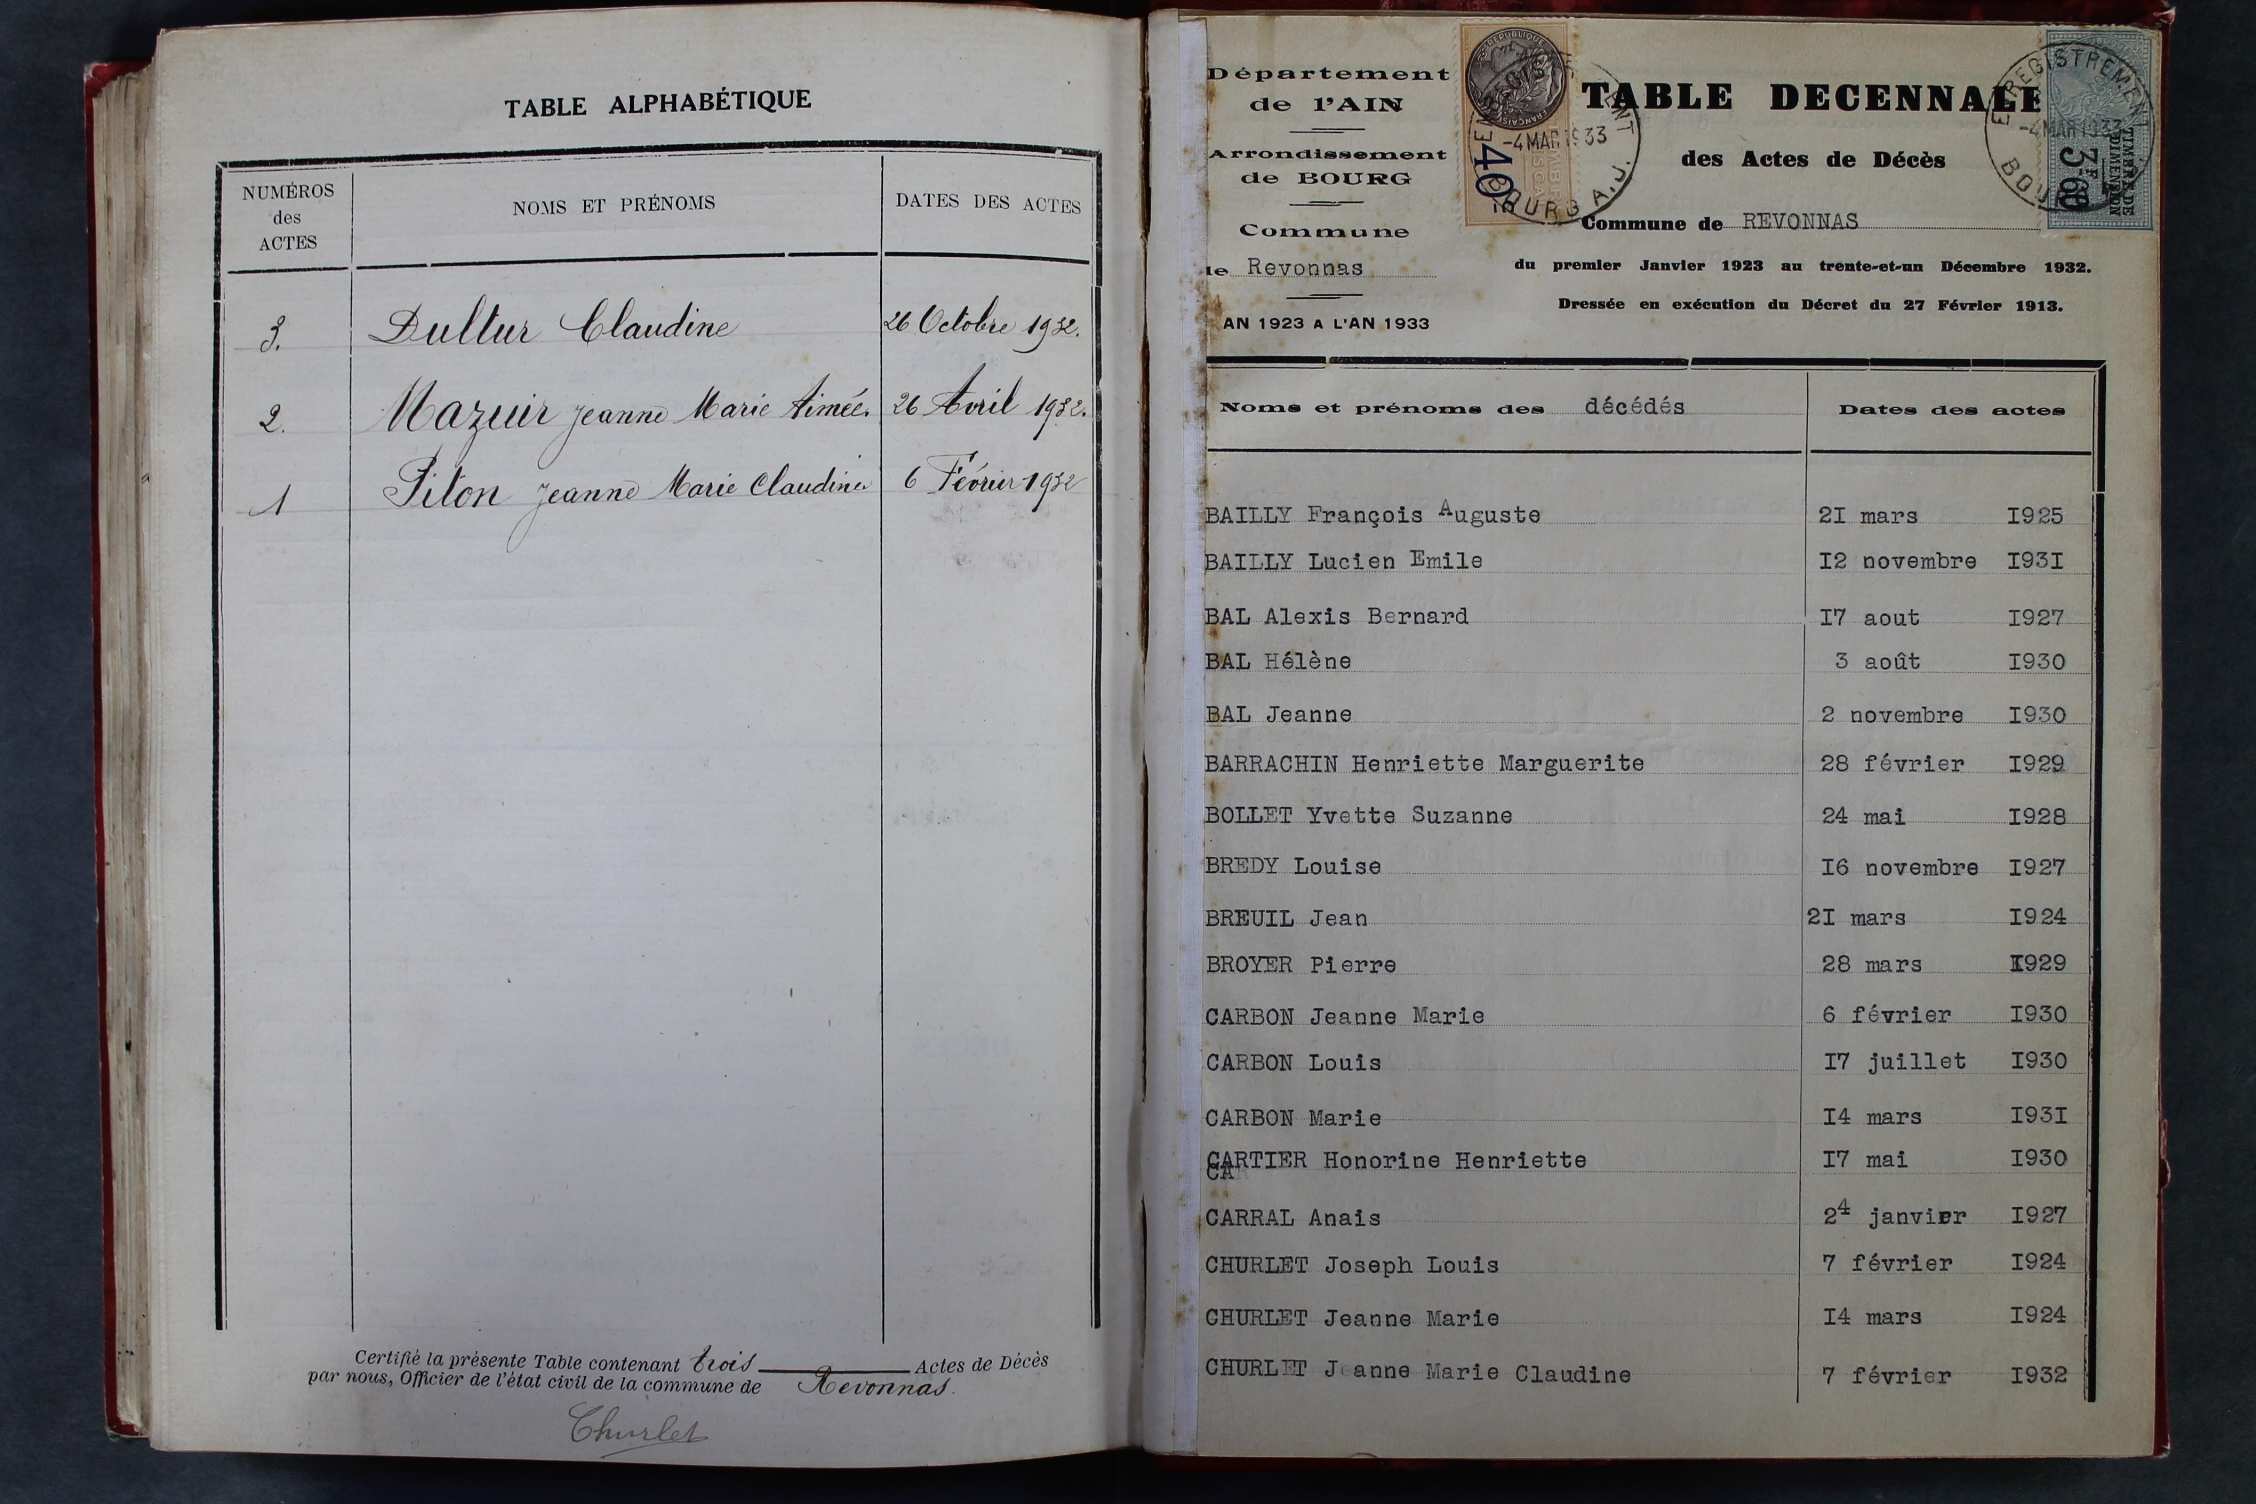 TABLE ALPHABÉTIQUE
NUMÉROS des ACTES
NOMS ET PRÉNOMS
DATES DES ACTES
3. Dultur Claudine 26 Octobre 1932.
2. Mazuir Jeanne Marie Aimée. 26 Avril 1932.
1 Piton Jeanne Marie Claudine 6 Février 1932
Certifié la présente Table contenant trois Actes de Décès
par nous, Officier de l'état civil de la commune de Revonnas.
Churlet
Département
de l'AIN
Arrondissement
de BOURG
Commune
de Revonnas
AN 1923 A L'AN 1933
ENREGISTREMENT
-4 MAR 1933
BOURG A.J.
40
TABLE DECENNALE
des Actes de Décès
Commune de REVONNAS
du premier Janvier 1923 au trente-et-un Décembre 1932.
Dressée en exécution du Décret du 27 Février 1913.
ENREGISTREMENT
-4 MAR 1933
TIMBRE DE
DIMENSION
3F60
Noms et prénoms des décédés
Dates des actes
BAILLY François Auguste 2I mars I925
BAILLY Lucien Emile I2 novembre I93I
BAL Alexis Bernard I7 aout I927
BAL Hélène 3 août I930
BAL Jeanne 2 novembre I930
BARRACHIN Henriette Marguerite 28 février I929
BOLLET Yvette Suzanne 24 mai I928
BREDY Louise I6 novembre I927
BREUIL Jean 2I mars I924
BROYER Pierre 28 mars I929
CARBON Jeanne Marie 6 février I930
CARBON Louis I7 juillet I930
CARBON Marie I4 mars I93I
CARTIER Honorine Henriette I7 mai I930
CAR
CARRAL Anais 24 janvier I927
CHURLET Joseph Louis 7 février I924
CHURLET Jeanne Marie I4 mars I924
CHURLET Jeanne Marie Claudine 7 février I932